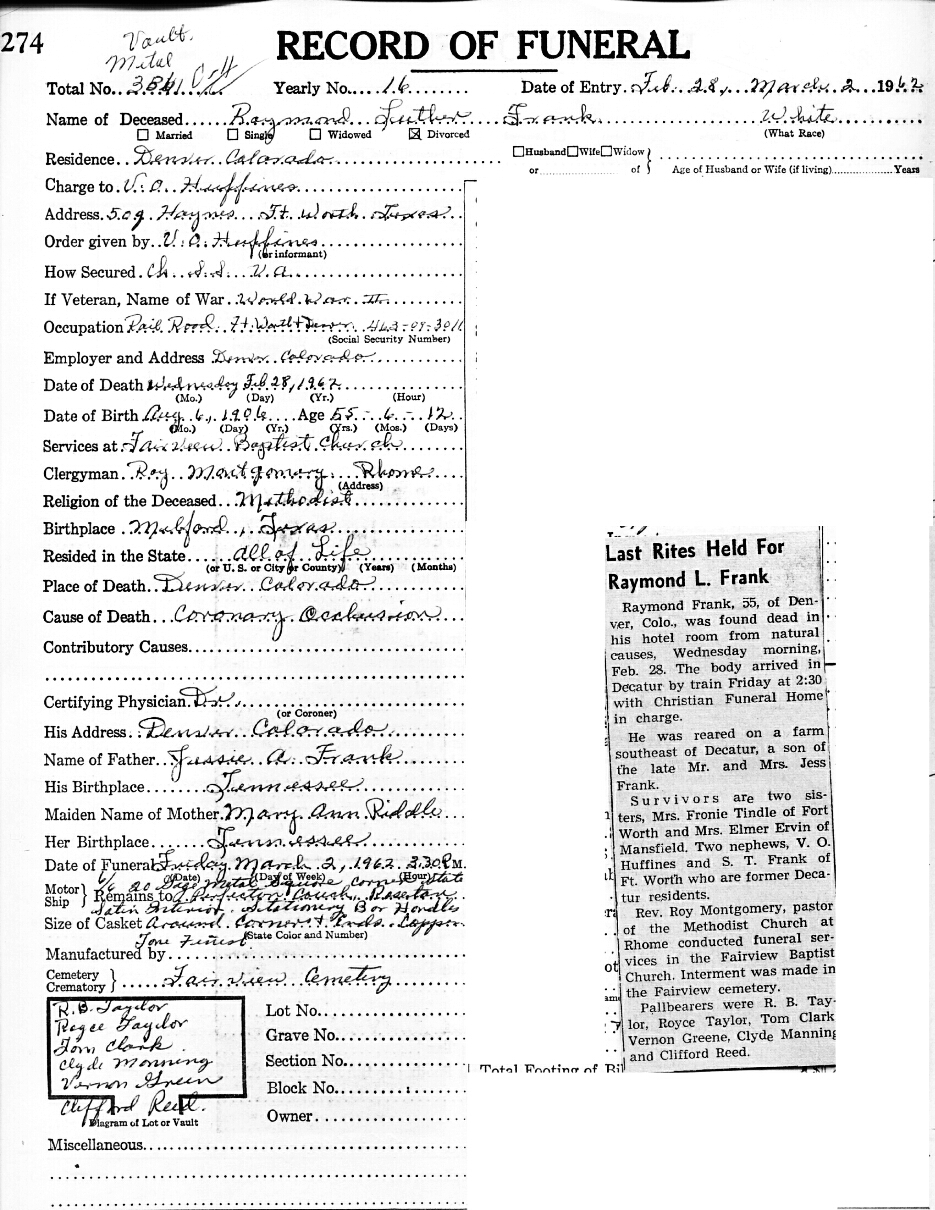 274
Vault.
Metal
RECORD OF FUNERAL
Total No. Yearly No. 16 Date of Entry. Feb. 28, March 2 1962
Name of Deceased Raymond Luther Frank White
☐ Married ☐ Single ☐ Widowed ☒ Divorced (What Race)
Residence Denver Colorado ☐Husband☐Wife☐Widow
or of Age of Husband or Wife (if living) Years
Charge to V. O. Huffines
Address. 509 Haynes Ft. Worth Texas
Order given by V. O. Huffines
(or informant)
How Secured. Ch. S.S. V.A.
If Veteran, Name of War World War II
Occupation Rail Road. Ft. Worth + Denver 463-09-3011
(Social Security Number)
Employer and Address Denver Colorado
Date of Death Wednesday Feb. 28, 1962
(Mo.) (Day) (Yr.) (Hour)
Date of Birth Aug. 6, 1906 Age 55 - 6 - 12
(Mo.) (Day) (Yr.) (Yrs.) (Mos.) (Days)
Services at Fairview Baptist Church
Clergyman Roy Montgomery Rhome
(Address)
Religion of the Deceased Methodist
Birthplace Texas
Resided in the State All of Life
(or U. S. or City or County) (Years) (Months)
Place of Death Denver Colorado
Cause of Death Coronary Occlusion
Contributory Causes
Certifying Physician Dr.
(or Coroner)
His Address Denver Colorado
Name of Father Jessie A. Frank
His Birthplace Tennessee
Maiden Name of Mother Mary Ann Riddle
Her Birthplace Tennessee
Date of Funeral Friday March 2, 1962 3:30 P.M.
(Date) (Day of Week) (Hour)
6/6 20 Gage Metal Square Corner State
Motor
Ship
Remains to Perfection Couch
Satin Interior Stationary Bar Handles
Size of Casket Around Corner + Ends Copper
(State Color and Number)
Tone Finest
Manufactured by
Cemetery
Crematory
Fairview Cemetery
R. B. Taylor
Royce Taylor
Tom Clark
Clyde Manning
Vernon Green
Clifford Reed.
Diagram of Lot or Vault
Lot No.
Grave No.
Section No.
Block No.
Owner
Miscellaneous
Last Rites Held For
Raymond L. Frank
Raymond Frank, 55, of Den-
ver, Colo., was found dead in
his hotel room from natural
causes, Wednesday morning,
Feb. 28. The body arrived in
Decatur by train Friday at 2:30
with Christian Funeral Home
in charge.
He was reared on a farm
southeast of Decatur, a son of
the late Mr. and Mrs. Jess
Frank.
Survivors are two sis-
ters, Mrs. Fronie Tindle of Fort
Worth and Mrs. Elmer Ervin of
Mansfield. Two nephews, V. O.
Huffines and S. T. Frank of
Ft. Worth who are former Deca-
tur residents.
Rev. Roy Montgomery, pastor
of the Methodist Church at
Rhome conducted funeral ser-
vices in the Fairview Baptist
Church. Interment was made in
the Fairview cemetery.
Pallbearers were R. B. Tay-
lor, Royce Taylor, Tom Clark
Vernon Greene, Clyde Manning
and Clifford Reed.
Total Footing of Bil